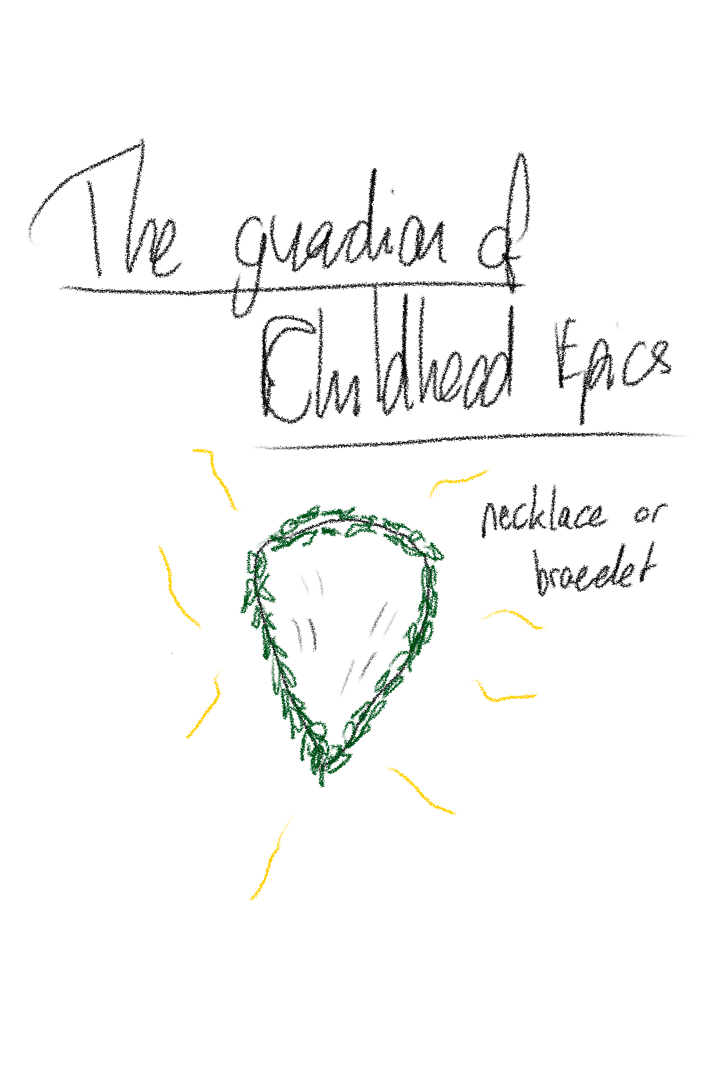 The guardian of
Childhead Epics
necklace or
bracelet